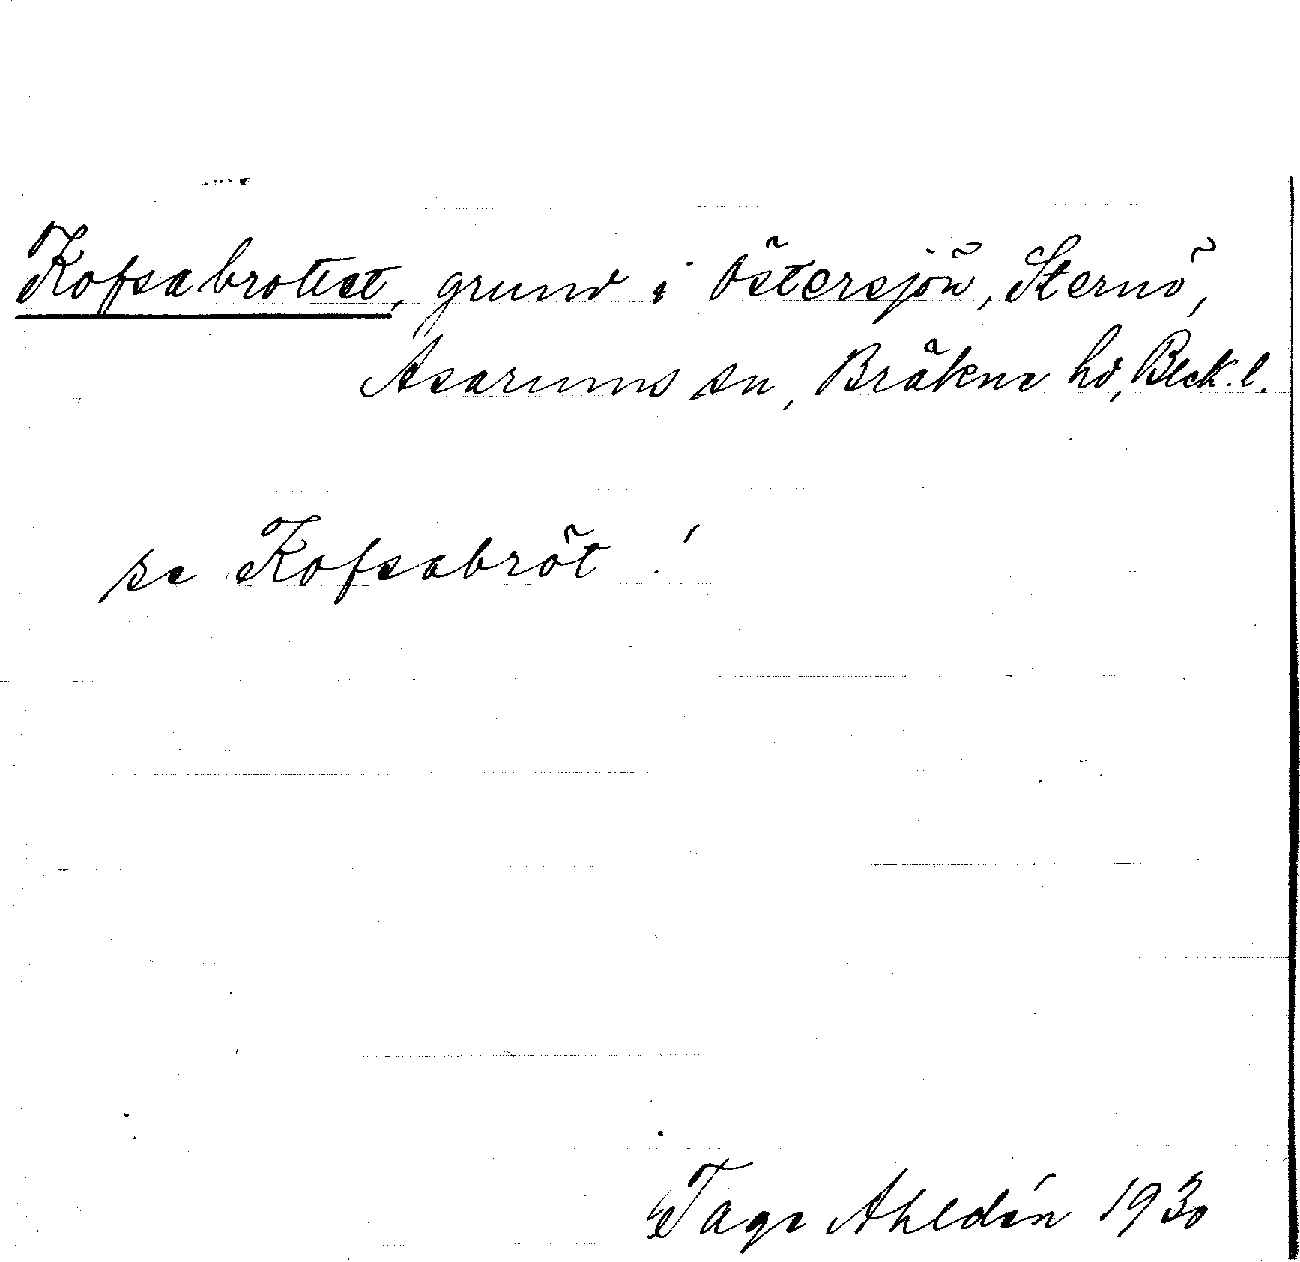 Kofsabrottet, grund i Östersjön, Sternö,
Asarums sn, Bräkne hd, Blek. l.
se Kofsabröt !
Tage Ahldén 1930